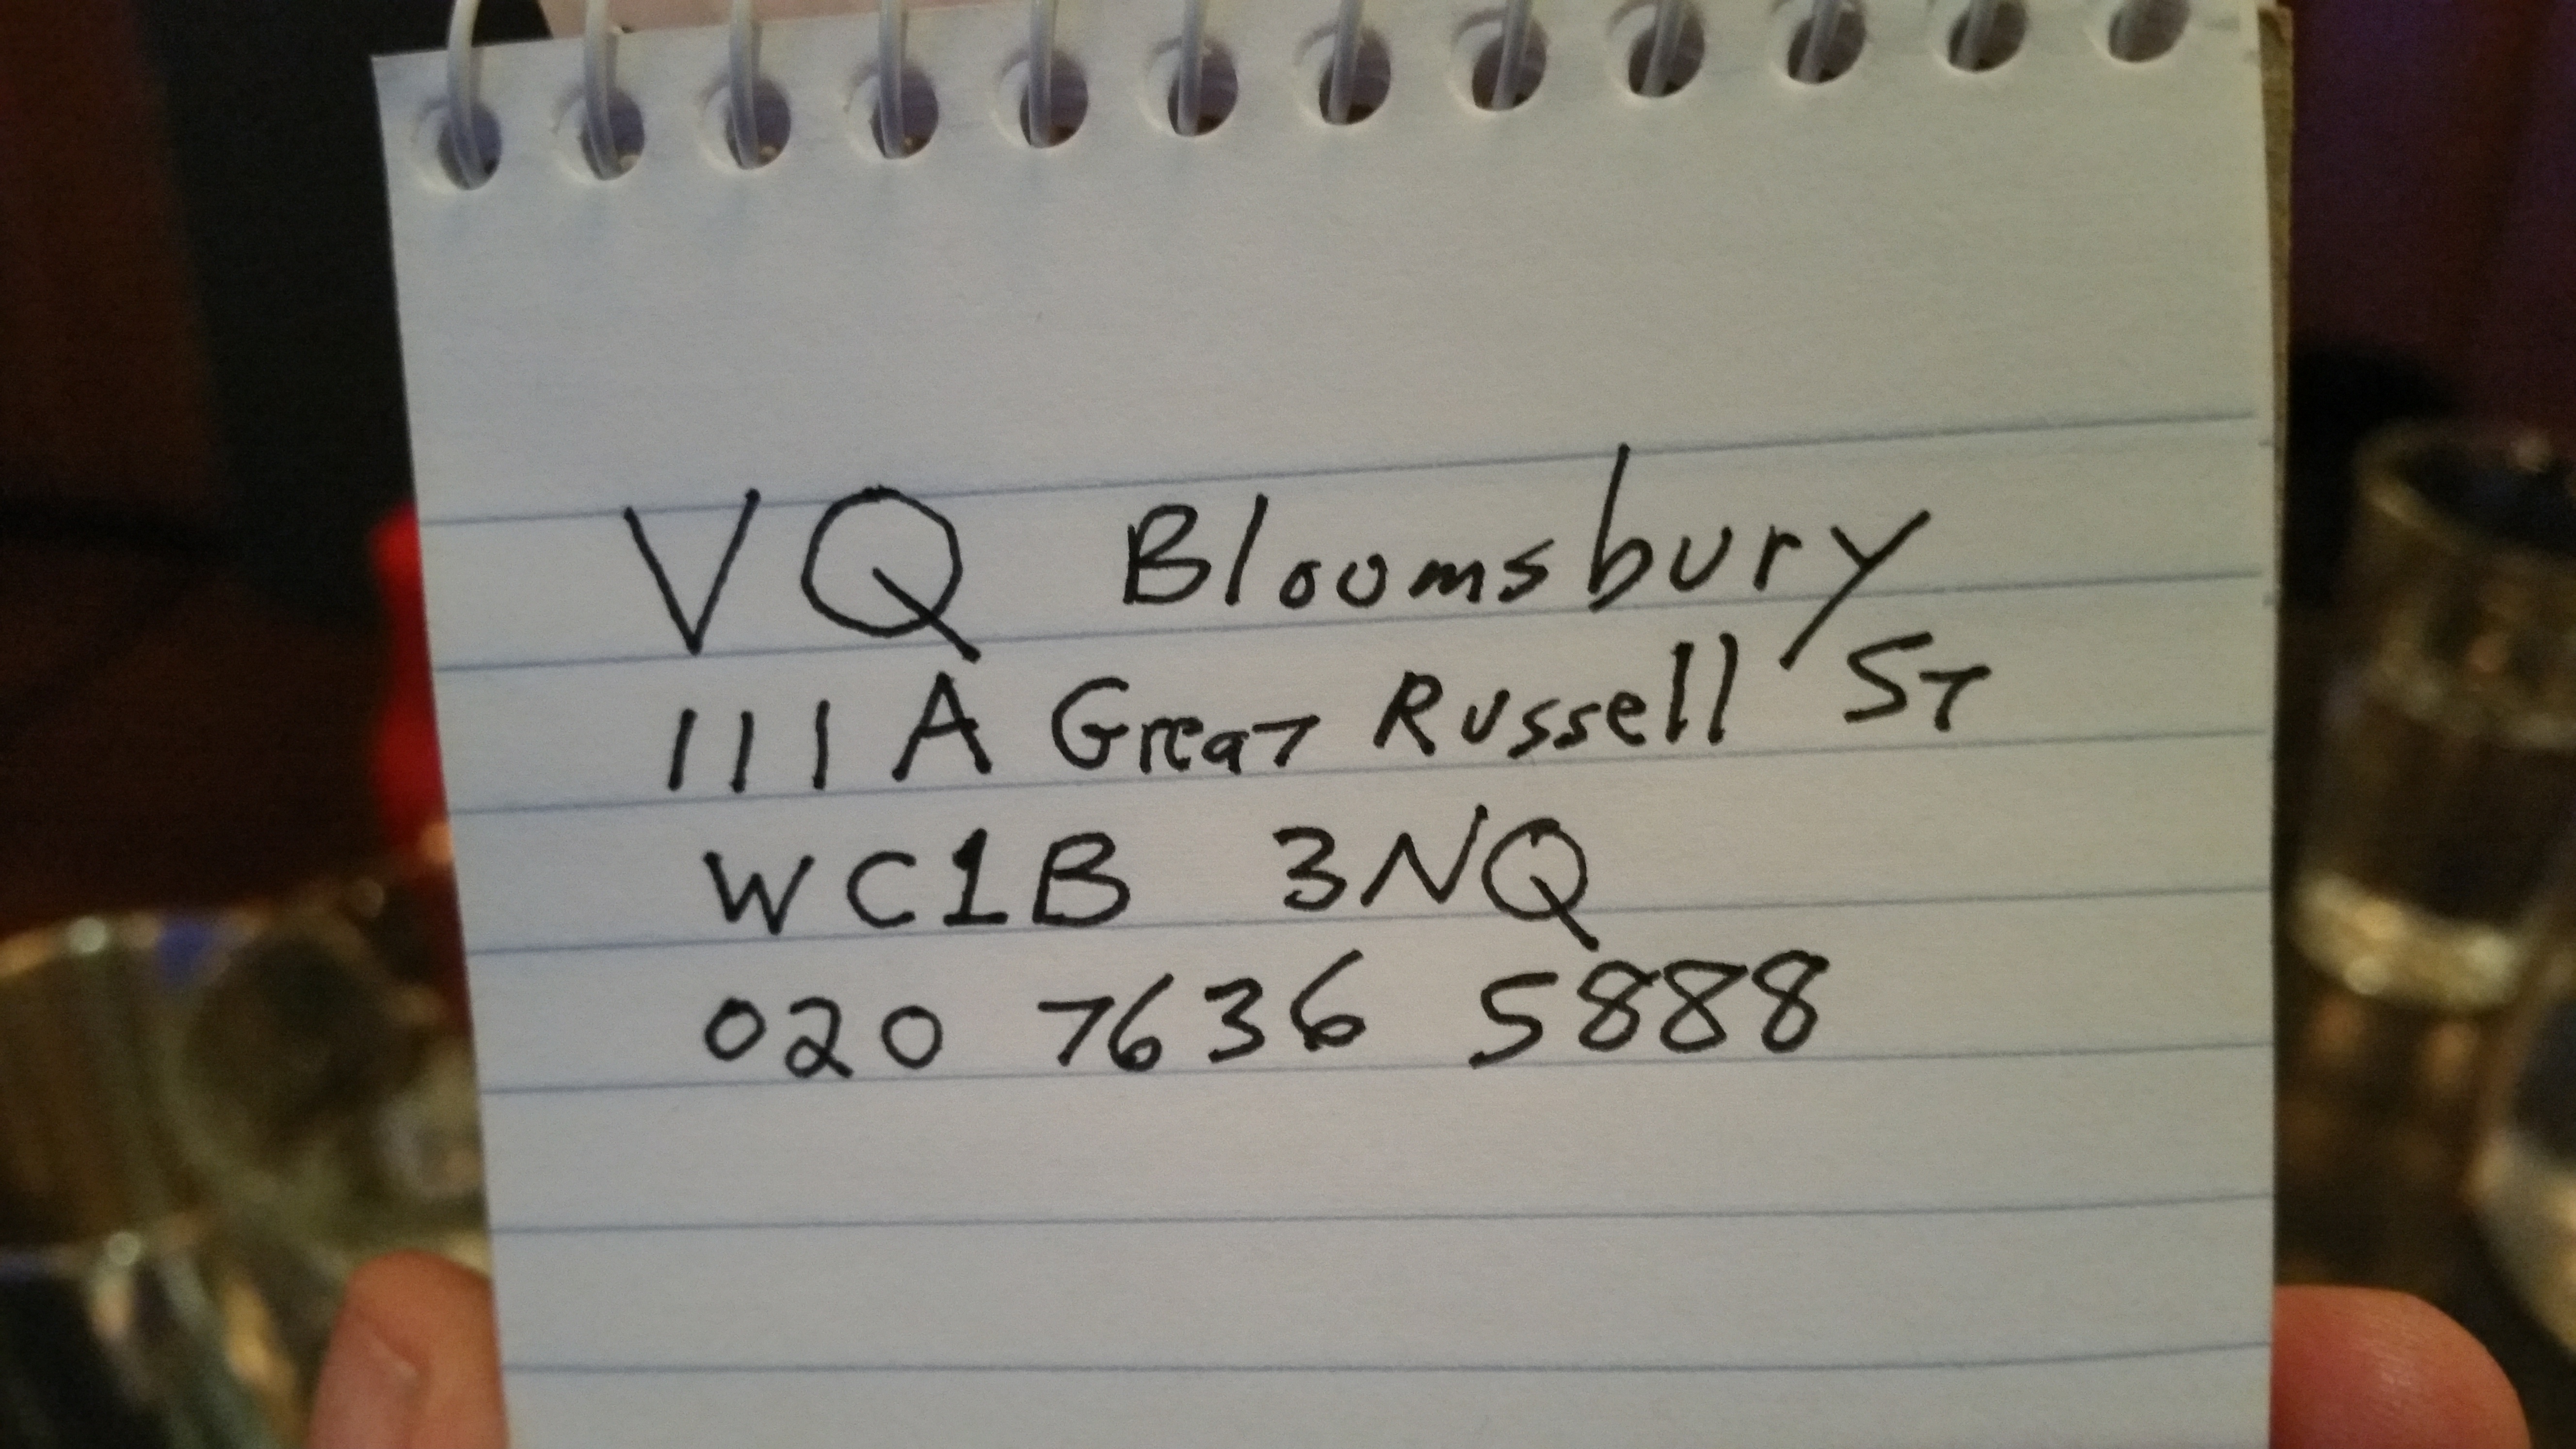 VQ Bloomsbury
111A Great Russell St
WC1B 3NQ
020 7636 5888